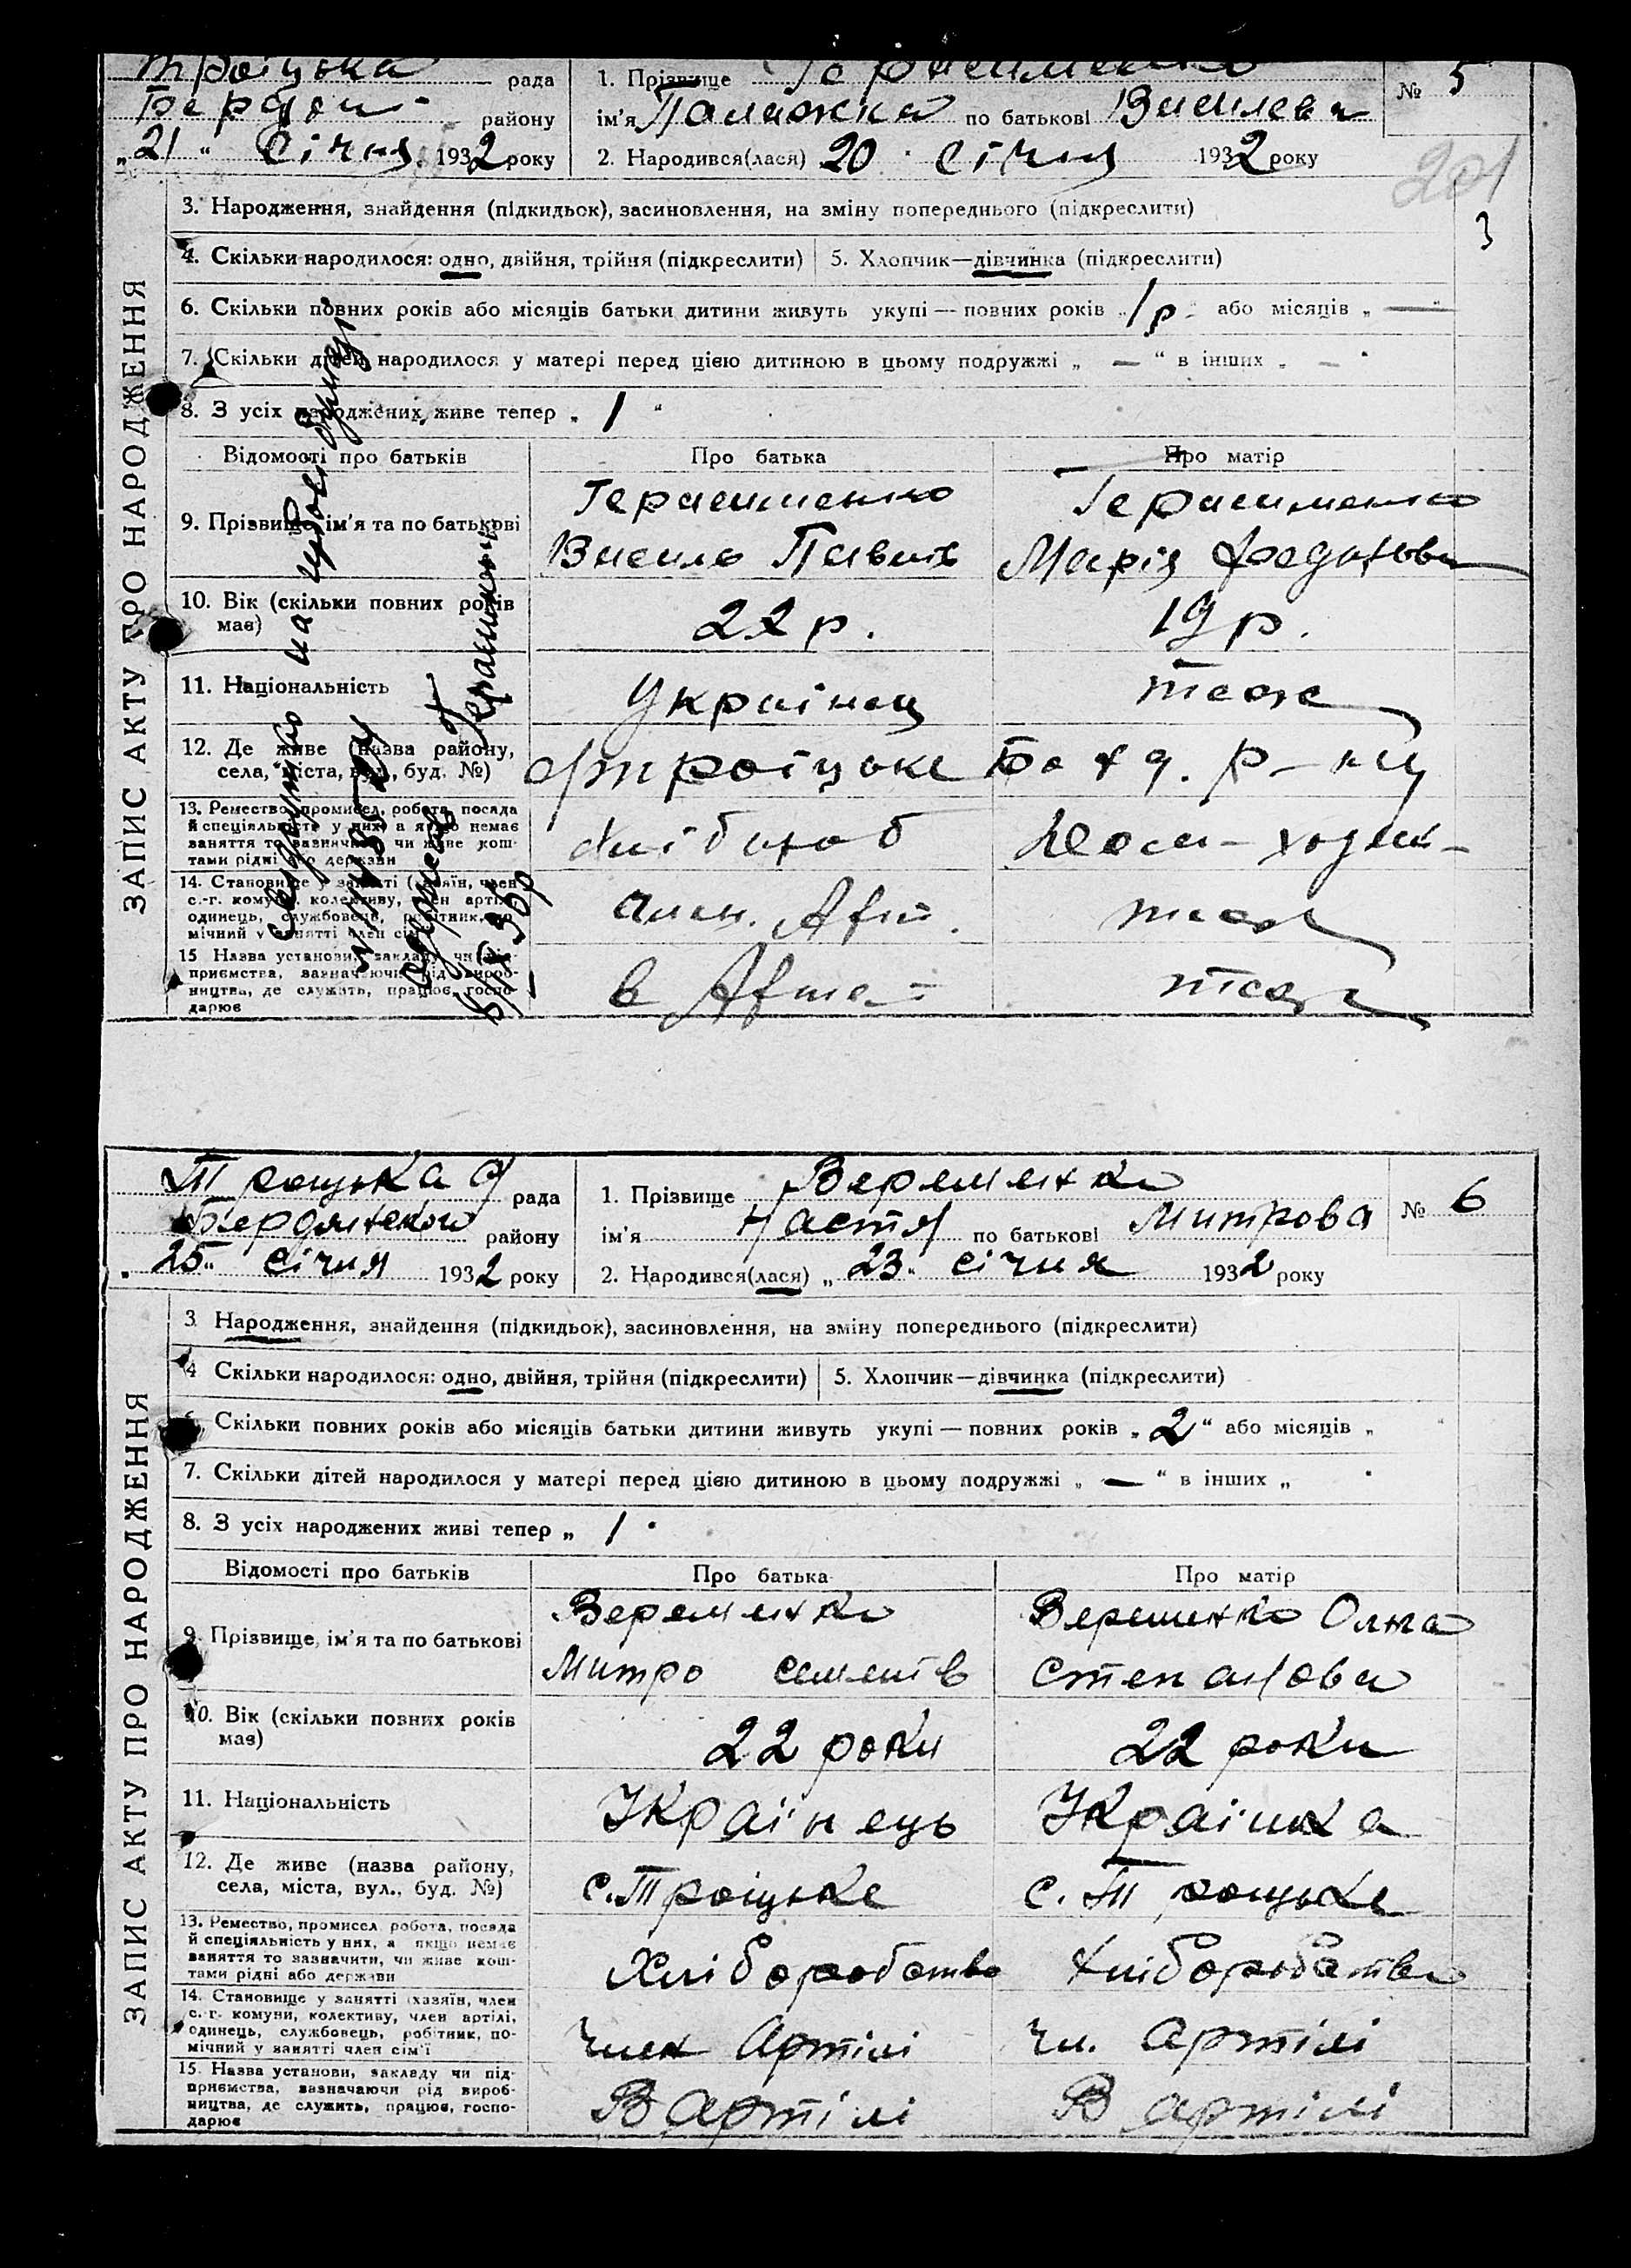 Троіцька рада
Бердян- району
„21“ Січня 1932 року
1. Прізвище Герасименко
ім'я Палажка по батькові Василева
2. Народився(лася) 20 Січня 1932 року
№ 5
201
3
ЗАПИС АКТУ ПРО НАРОДЖЕННЯ
3. Народження, знайдення (підкидьок), засиновлення, на зміну попереднього (підкреслити)
4. Скільки народилося: одно, двійня, трійня (підкреслити) 5. Хлопчик—дівчинка (підкреслити)
6. Скільки повних років або місяців батьки дитини живуть укупі — повних років „1р“ або місяців „—“
7. Скільки дітей народилося у матері перед цією дитиною в цьому подружжі „ — “ в інших „ — “
8. З усіх народжених живе тепер „ 1 “
Відомості про батьків Про батька Про матір
9. Прізвище, ім'я та по батькові
Герасименко
Василь Павлів
Герасименко
Марія
10. Вік (скільки повних років
має)
22 р.
19 р.
11. Національність
Украінец
тоже
12. Де живе (назва району,
села, міста, вул., буд. №)
Троіцьке р-ну
13. Ремество, промисел, робота, посада
й спеціяльність у них, а якщо немає
заняття то зазначити, чи живе кош-
тами рідні або держави
14. Становище у занятті (хазяїн, член
с.-г. комуни, колективу, член артілі,
одинець, службовець, робітник, по-
мічний у занятті член сім'ї
член.
тоже
15 Назва установи, закладу чи під-
приємства, зазначаючи рід вироб-
ництва, де служить, працює, госпо-
дарює
в
тоже
Герасименко
Троцька рада
Бердянського району
„25“ січня 1932 року
1. Прізвище Веременко
ім'я Настя по батькові Митрова
2. Народився(лася) „23“ січня 1932 року
№ 6
ЗАПИС АКТУ ПРО НАРОДЖЕННЯ
3 Народження, знайдення (підкидьок), засиновлення, на зміну попереднього (підкреслити)
4 Скільки народилося: одно, двійня, трійня (підкреслити) 5. Хлопчик—дівчинка (підкреслити)
6 Скільки повних років або місяців батьки дитини живуть укупі — повних років „2“ або місяців „ “
7. Скільки дітей народилося у матері перед цією дитиною в цьому подружжі „ — “ в інших „ “
8. З усіх народжених живі тепер „ 1 “
Відомості про батьків Про батька Про матір
9. Прізвище, ім'я та по батькові
Веременко
Митро Семенів
Веременко Ольга
Степанова
10. Вік (скільки повних років
має)
22 роки
22 роки
11. Національність
Украінець
Украінка
12. Де живе (назва району,
села, міста, вул., буд. №)
с. Троіцьке
с. Троцьке
13. Ремество, промисел робота, посада
й спеціяльність у них, а якщо немає
заняття то зазначити, чи живе кош-
тами рідні або держави
Хліборобство
Хліборобство
14. Становище у занятті (хазяїн, член
с.-г. комуни, колективу, член артілі,
одинець, службовець, робітник, по-
мічний у занятті член сім'ї
член Артілі
чл. Артілі
15. Назва установи, закладу чи під-
приємства, зазначаючи рід вироб-
ництва, де служить, працює, госпо-
дарює
В артілі
В артілі